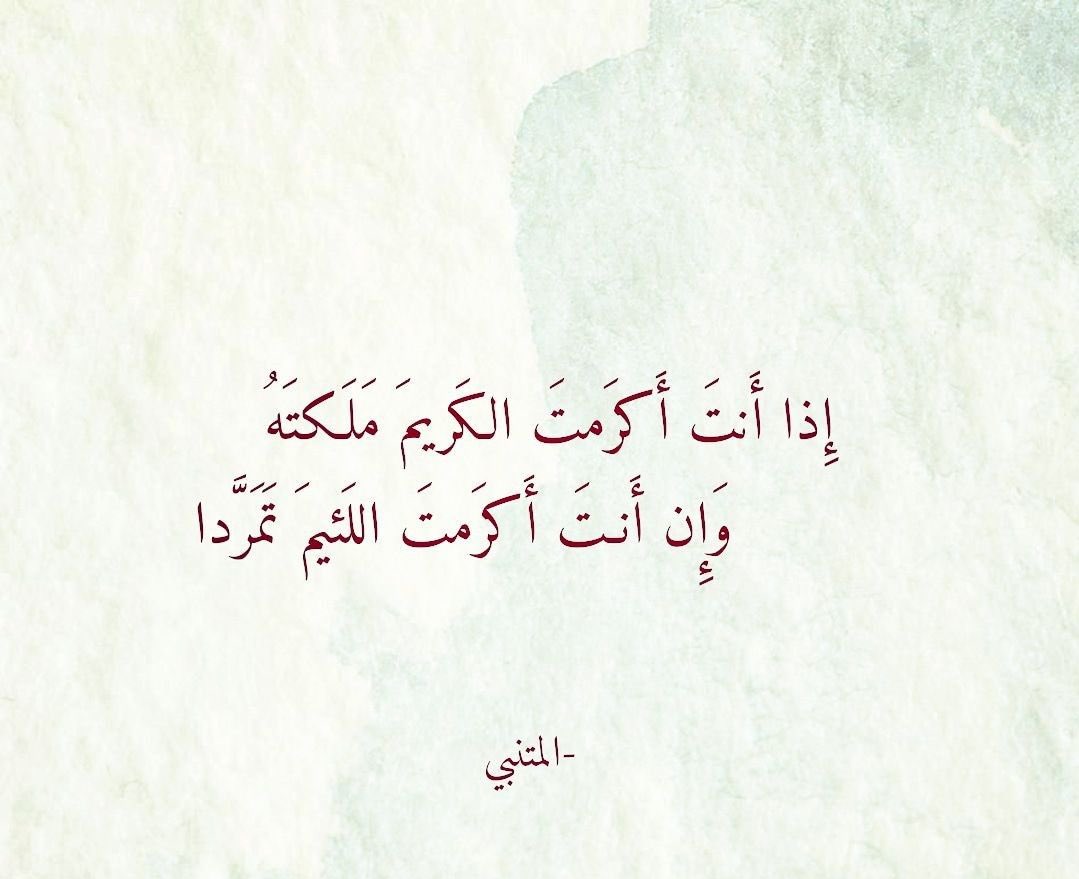 إِذا أَنتَ أَكرَمتَ الكَريمَ مَلَكتَهُ
وَإِن أَنتَ أَكرَمتَ اللَئيمَ تَمَرَّدا
-المتنبي